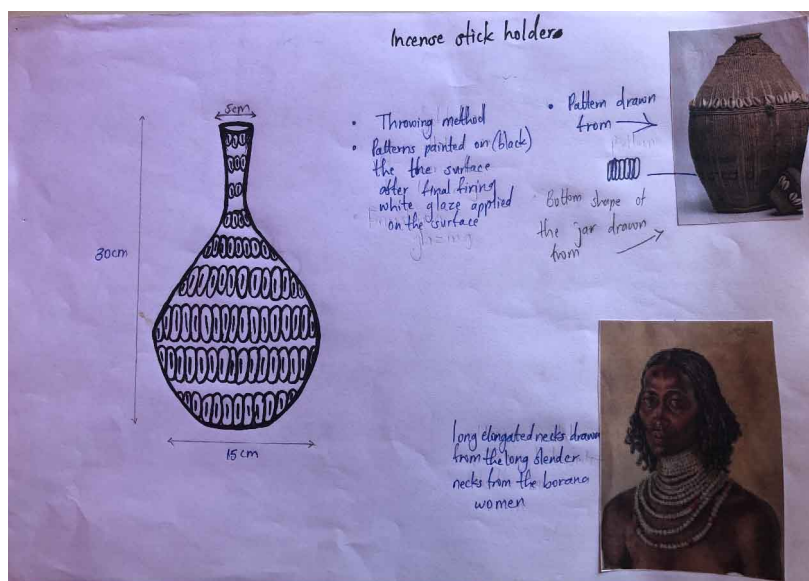 Incense stick holder
5cm
30cm
15cm
• Throwing method
• Patterns painted on (black)
the the surface
after final firing
white glaze applied
on the surface
glazing
• Pattern drawn
from
Bottom shape of
the jar drawn
from
long elongated necks drawn
from the long slender
necks from the borana
women